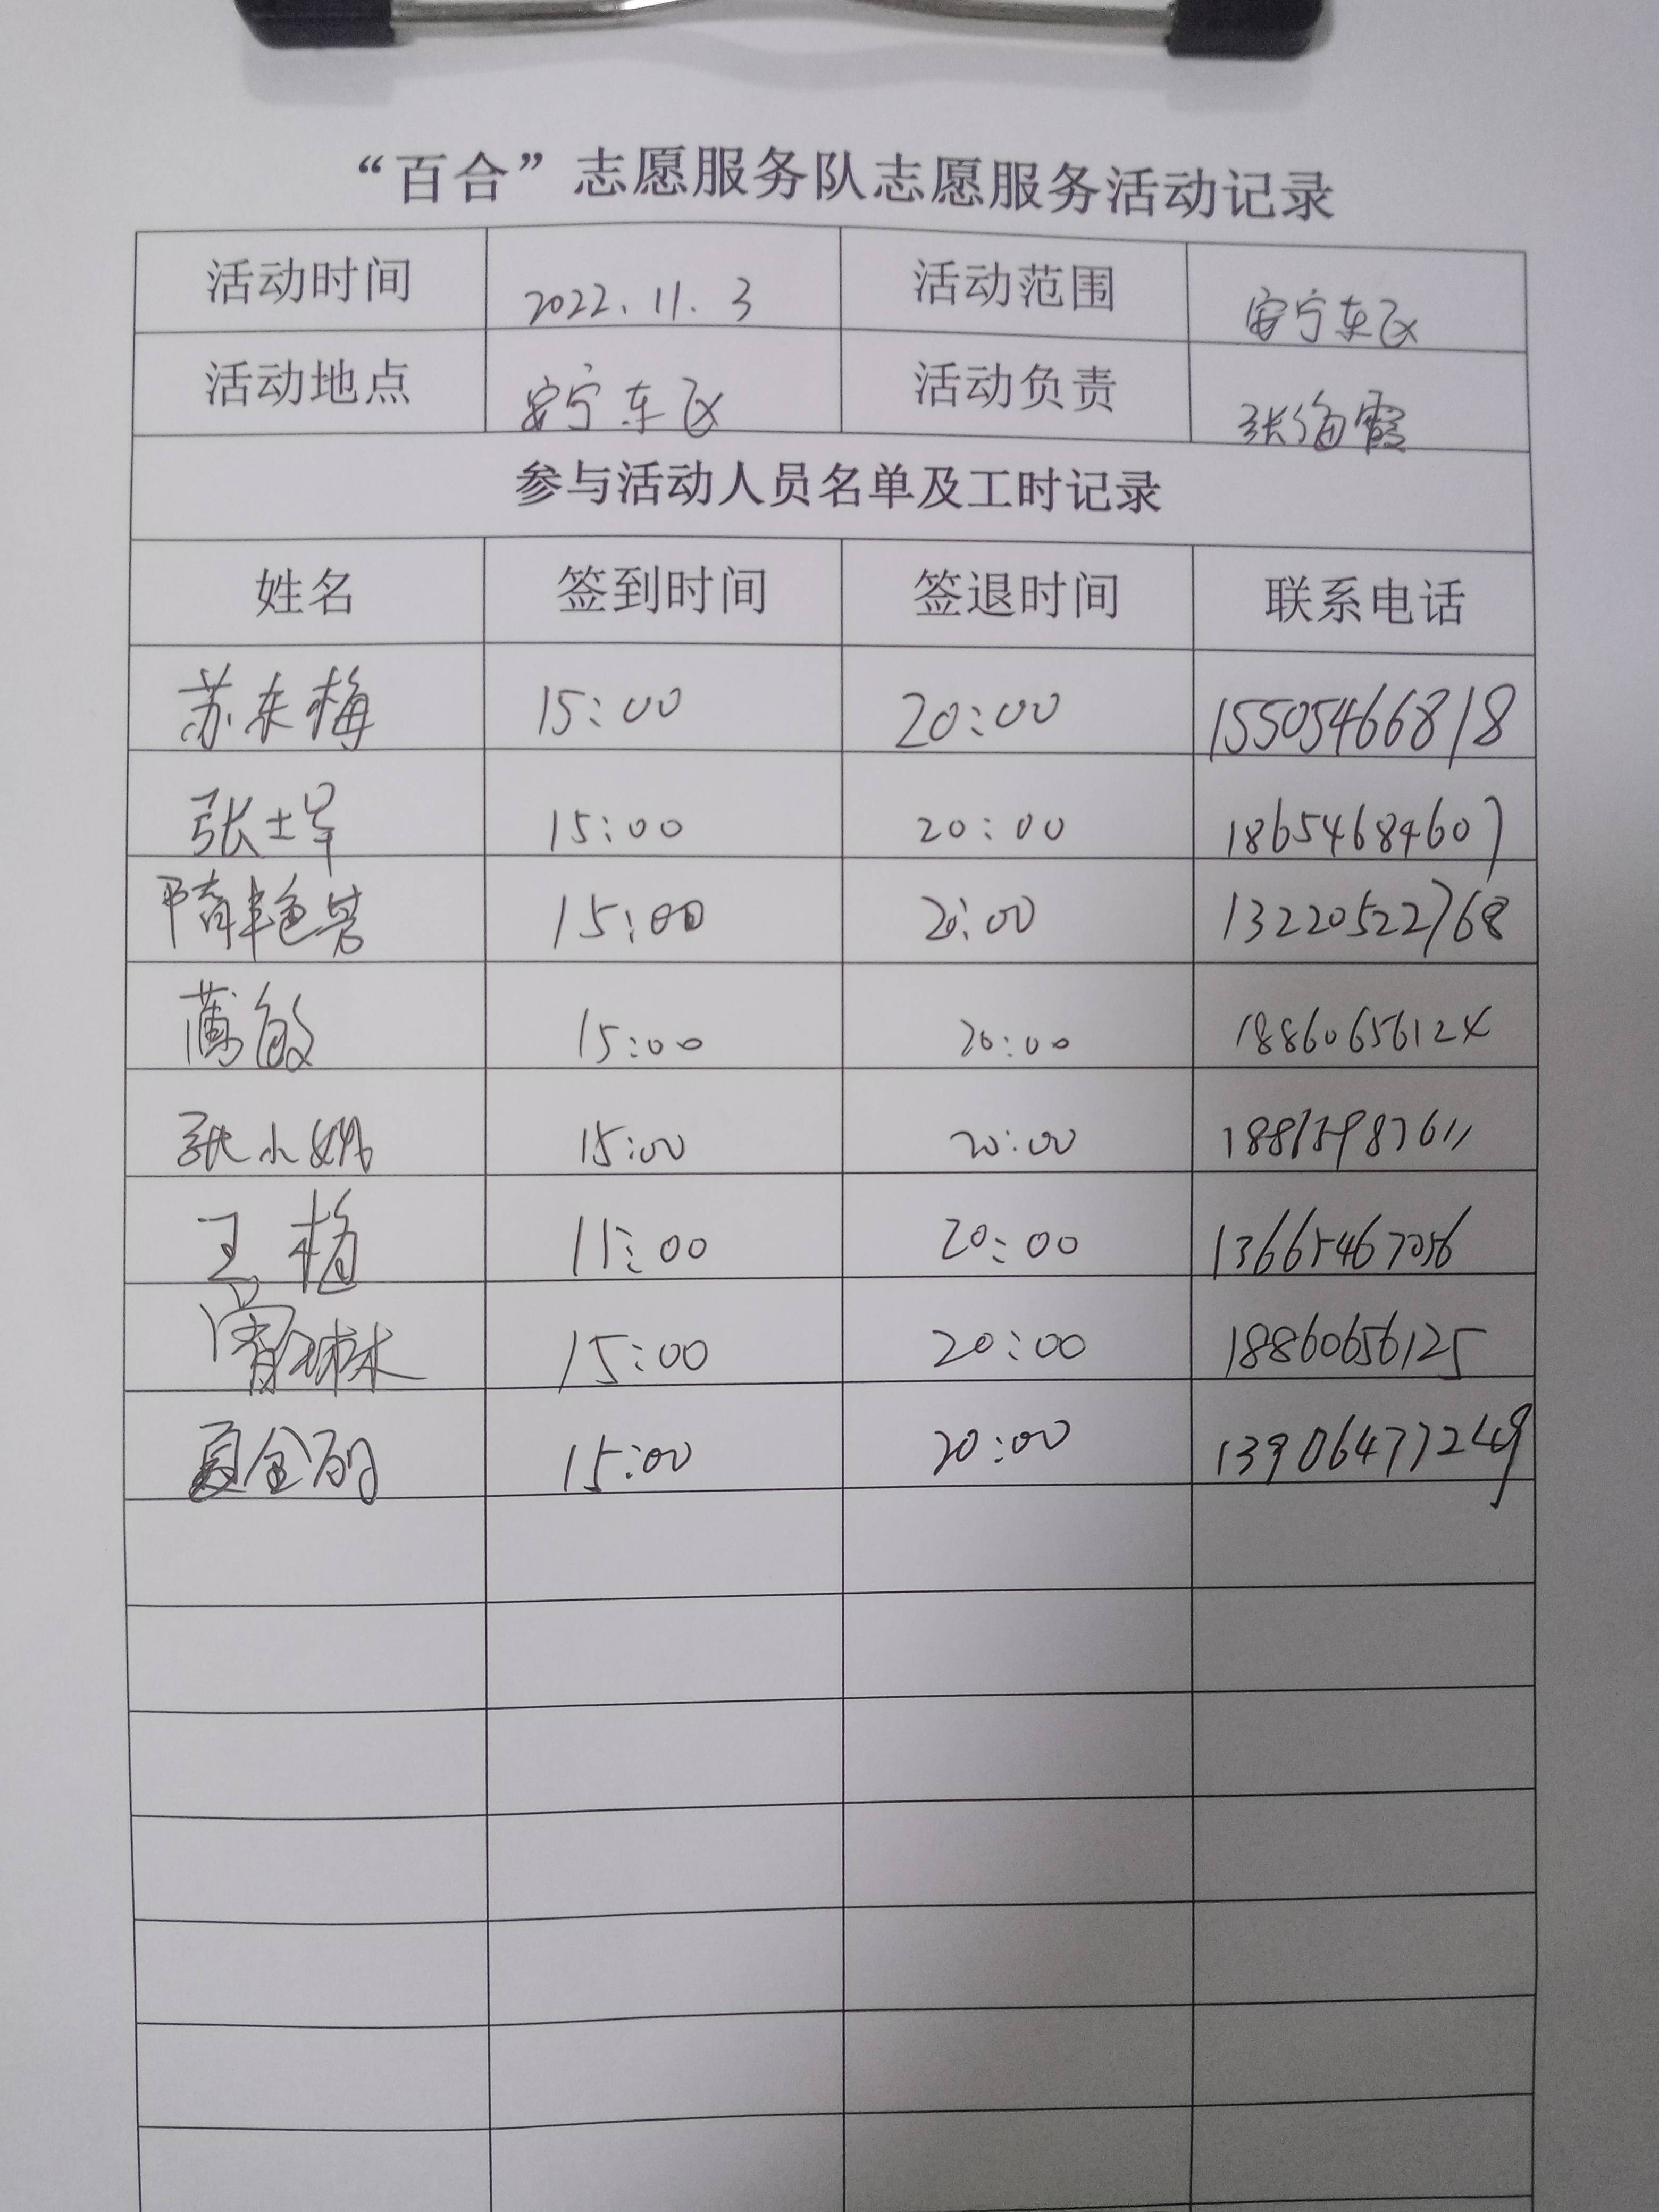 “百合”志愿服务队志愿服务活动记录
活动时间 2022.11.3 活动范围 安宁东区
活动地点 安宁东区 活动负责 张海霞
参与活动人员名单及工时记录
姓名 签到时间 签退时间 联系电话
苏东梅 15:00 20:00 15505466818
张士军 15:00 20:00 18654684607
隋艳芳 15:00 20:00 13220522768
蔺敏 15:00 20:00 18860656124
张小娜 15:00 20:00
王梅 15:00 20:00 13665467056
15:00 20:00 18860656125
15:00 20:00 13906477249